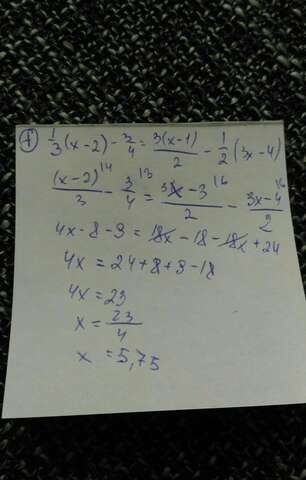 f) 1/3 (x-2) - 3/4 = 3(x-1)/2 - 1/2 (3x-4)
(x-2)/3 |4 - 3/4 |3 = 3x-3/2 |6 - 3x-4/2 |6
4x - 8 - 9 = 18x - 18 - 18x + 24
4x = 24+8+9-18
4x = 23
x = 23/4
x = 5,75